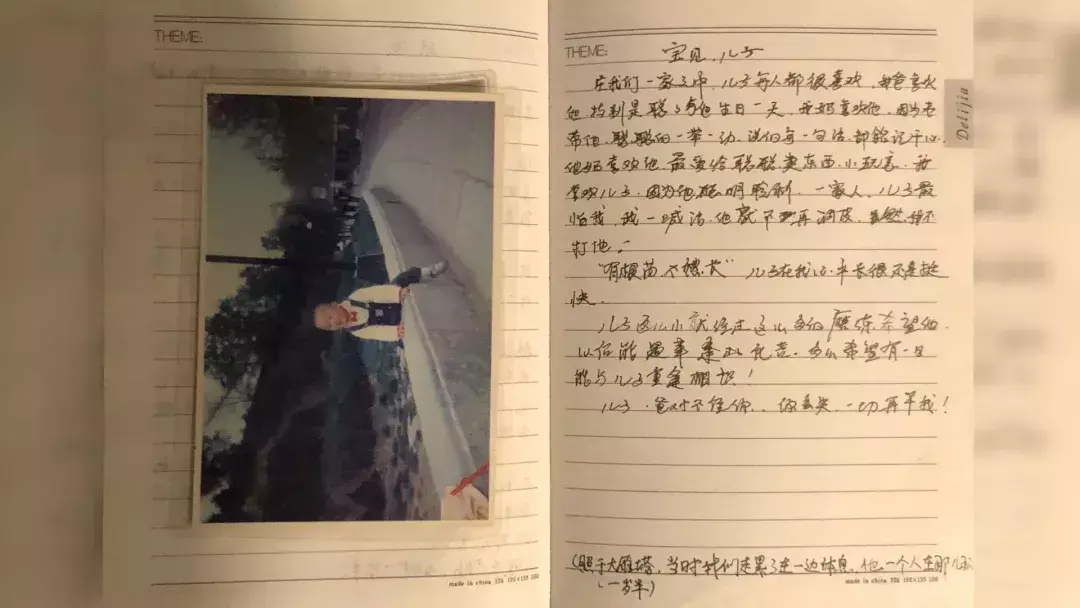 THEME:
made in china 32k 195×135 100
THEME:
宝贝,儿子
在我们一家之中,儿子每人都很喜欢,
他特别是聪 生日一天,我妈喜欢他,因为
带他,聪聪的一举一动,说的每一句话,都铭记于心,
他妈喜欢他,最爱给聪聪卖东西、小玩意,我
喜欢儿子,因为他聪明伶俐,一家人,儿子最
怕我,我一喊话,他就不 再调皮,当然,我不
打他。
"有根苗,不愁长" 儿子在我 中长得还是挺
快。
儿子这么小就经过这么多的磨练,希望他
以后能遇事 吃苦,多么希望有一日
能与儿子重逢相识!
儿子,爸对不住你,你丢失,一切再平我!
Delijia
(照于大雁塔,当时我们走累了在一边休息,他一个人在那儿
一岁半)
made in china 32k 195×135 100